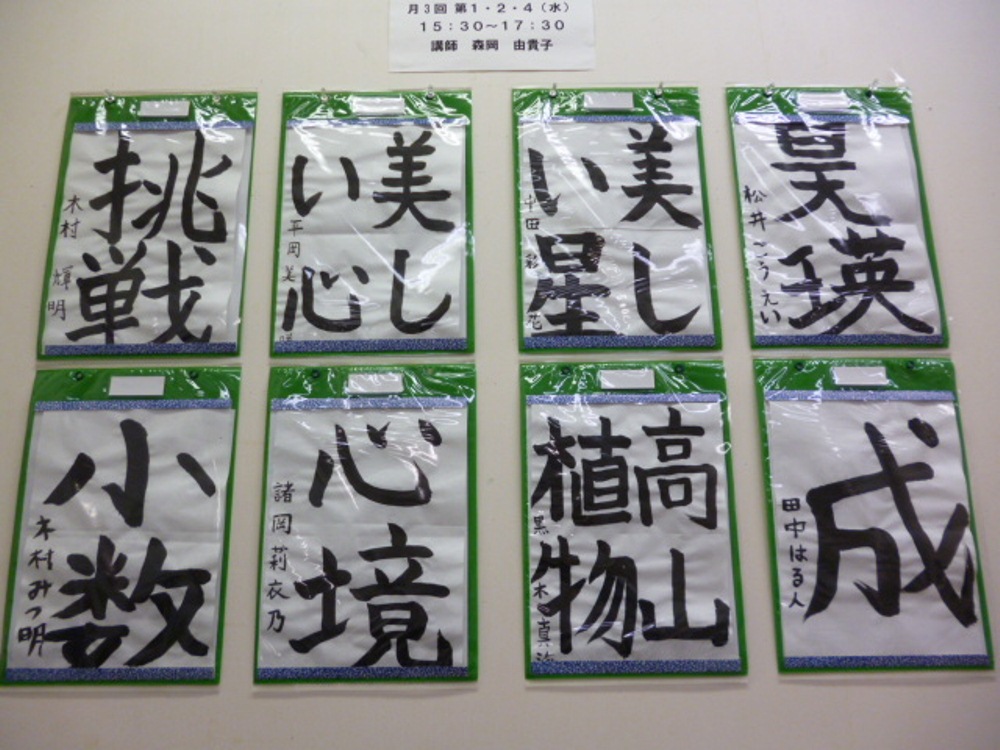 月3回 第1・2・4(水)
15:30~17:30
講師 森岡 由貴子
挑戦
木村 輝明
美し
い心
平岡美
美し
い星
田 彩花
昊瑛
松井こうえい
小数
木村みつ明
心境
諸岡莉衣乃
高山
植物
黒木真
成
田中はる人